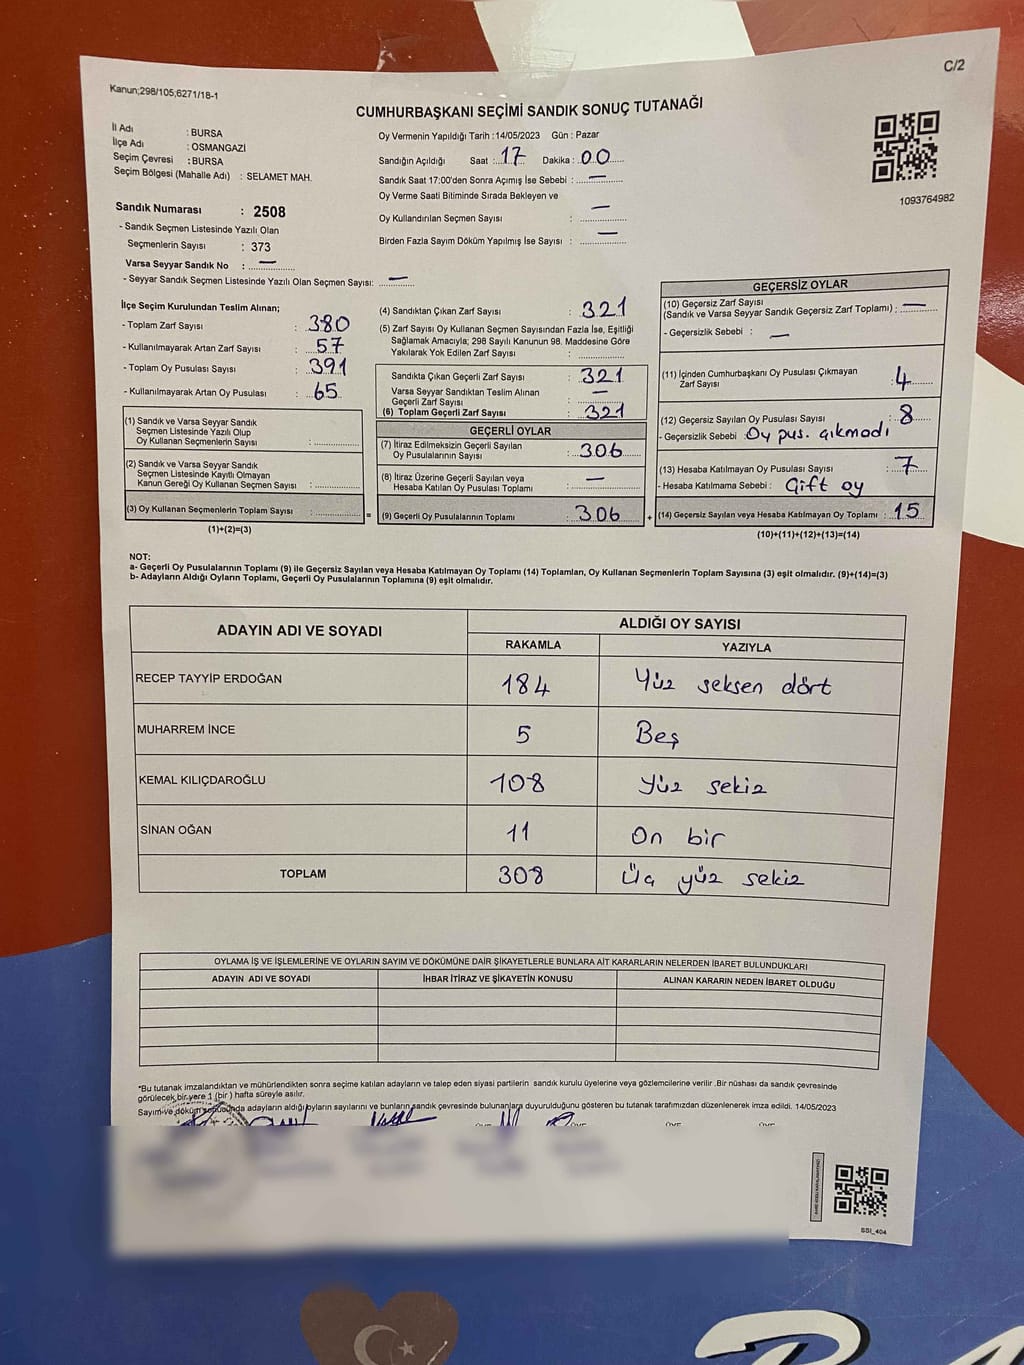 C/2
Kanun;298/105;6271/18-1
CUMHURBAŞKANI SEÇİMİ SANDIK SONUÇ TUTANAĞI
İl Adı : BURSA
İlçe Adı : OSMANGAZİ
Seçim Çevresi : BURSA
Seçim Bölgesi (Mahalle Adı) : SELAMET MAH.
Sandık Numarası : 2508
- Sandık Seçmen Listesinde Yazılı Olan
Seçmenlerin Sayısı : 373
Varsa Seyyar Sandık No : —
- Seyyar Sandık Seçmen Listesinde Yazılı Olan Seçmen Sayısı: —
Oy Vermenin Yapıldığı Tarih : 14/05/2023 Gün : Pazar
Sandığın Açıldığı Saat : 17 Dakika : 00
Sandık Saat 17:00'den Sonra Açımış İse Sebebi : —
Oy Verme Saati Bitiminde Sırada Bekleyen ve —
Oy Kullandırılan Seçmen Sayısı :
Birden Fazla Sayım Döküm Yapılmış İse Sayısı : —
1093764982
İlçe Seçim Kurulundan Teslim Alınan;
- Toplam Zarf Sayısı : 380
- Kullanılmayarak Artan Zarf Sayısı : 57
- Toplam Oy Pusulası Sayısı : 391
- Kullanılmayarak Artan Oy Pusulası : 65
(1) Sandık ve Varsa Seyyar Sandık
Seçmen Listesinde Yazılı Olup
Oy Kullanan Seçmenlerin Sayısı :
(2) Sandık ve Varsa Seyyar Sandık
Seçmen Listesinde Kayıtlı Olmayan
Kanun Gereği Oy Kullanan Seçmen Sayısı :
(3) Oy Kullanan Seçmenlerin Toplam Sayısı :
(1)+(2)=(3)
(4) Sandıktan Çıkan Zarf Sayısı : 321
(5) Zarf Sayısı Oy Kullanan Seçmen Sayısından Fazla İse, Eşitliği
Sağlamak Amacıyla; 298 Sayılı Kanunun 98. Maddesine Göre
Yakılarak Yok Edilen Zarf Sayısı :
Sandıkta Çıkan Geçerli Zarf Sayısı : 321
Varsa Seyyar Sandıktan Teslim Alınan
Geçerli Zarf Sayısı : —
(6) Toplam Geçerli Zarf Sayısı : 321
GEÇERLİ OYLAR
(7) İtiraz Edilmeksizin Geçerli Sayılan
Oy Pusulalarının Sayısı : 306
(8) İtiraz Üzerine Geçerli Sayılan veya
Hesaba Katılan Oy Pusulası Toplamı : —
= (9) Geçerli Oy Pusulalarının Toplamı : 306
GEÇERSİZ OYLAR
(10) Geçersiz Zarf Sayısı
(Sandık ve Varsa Seyyar Sandık Geçersiz Zarf Toplamı) : —
- Geçersizlik Sebebi : —
(11) İçinden Cumhurbaşkanı Oy Pusulası Çıkmayan
Zarf Sayısı : 4
(12) Geçersiz Sayılan Oy Pusulası Sayısı : 8
- Geçersizlik Sebebi : Oy pus. çıkmadı
(13) Hesaba Katılmayan Oy Pusulası Sayısı : 7
- Hesaba Katılmama Sebebi : Çift oy
+ (14) Geçersiz Sayılan veya Hesaba Katılmayan Oy Toplamı : 15
(10)+(11)+(12)+(13)=(14)
NOT:
a- Geçerli Oy Pusulalarının Toplamı (9) ile Geçersiz Sayılan veya Hesaba Katılmayan Oy Toplamı (14) Toplamları, Oy Kullanan Seçmenlerin Toplam Sayısına (3) eşit olmalıdır. (9)+(14)=(3)
b- Adayların Aldığı Oyların Toplamı, Geçerli Oy Pusulalarının Toplamına (9) eşit olmalıdır.
ADAYIN ADI VE SOYADI ALDIĞI OY SAYISI
RAKAMLA YAZIYLA
RECEP TAYYİP ERDOĞAN 184 Yüz seksen dört
MUHARREM İNCE 5 Beş
KEMAL KILIÇDAROĞLU 108 Yüz sekiz
SİNAN OĞAN 11 On bir
TOPLAM 308 Üç yüz sekiz
OYLAMA İŞ VE İŞLEMLERİNE VE OYLARIN SAYIM VE DÖKÜMÜNE DAİR ŞİKAYETLERLE BUNLARA AİT KARARLARIN NELERDEN İBARET BULUNDUKLARI
ADAYIN ADI VE SOYADI İHBAR İTİRAZ VE ŞİKAYETİN KONUSU ALINAN KARARIN NEDEN İBARET OLDUĞU
*Bu tutanak imzalandıktan ve mühürlendikten sonra seçime katılan adayların ve talep eden siyasi partilerin sandık kurulu üyelerine veya gözlemcilerine verilir .Bir nüshası da sandık çevresinde
görülecek bir yere 1 (bir ) hafta süreyle asılır.
Sayım ve döküm sonucunda adayların aldığı oyların sayılarını ve bunların sandık çevresinde bulunanlara duyurulduğunu gösteren bu tutanak tarafımızdan düzenlenerek imza edildi. 14/05/2023
SSI_404